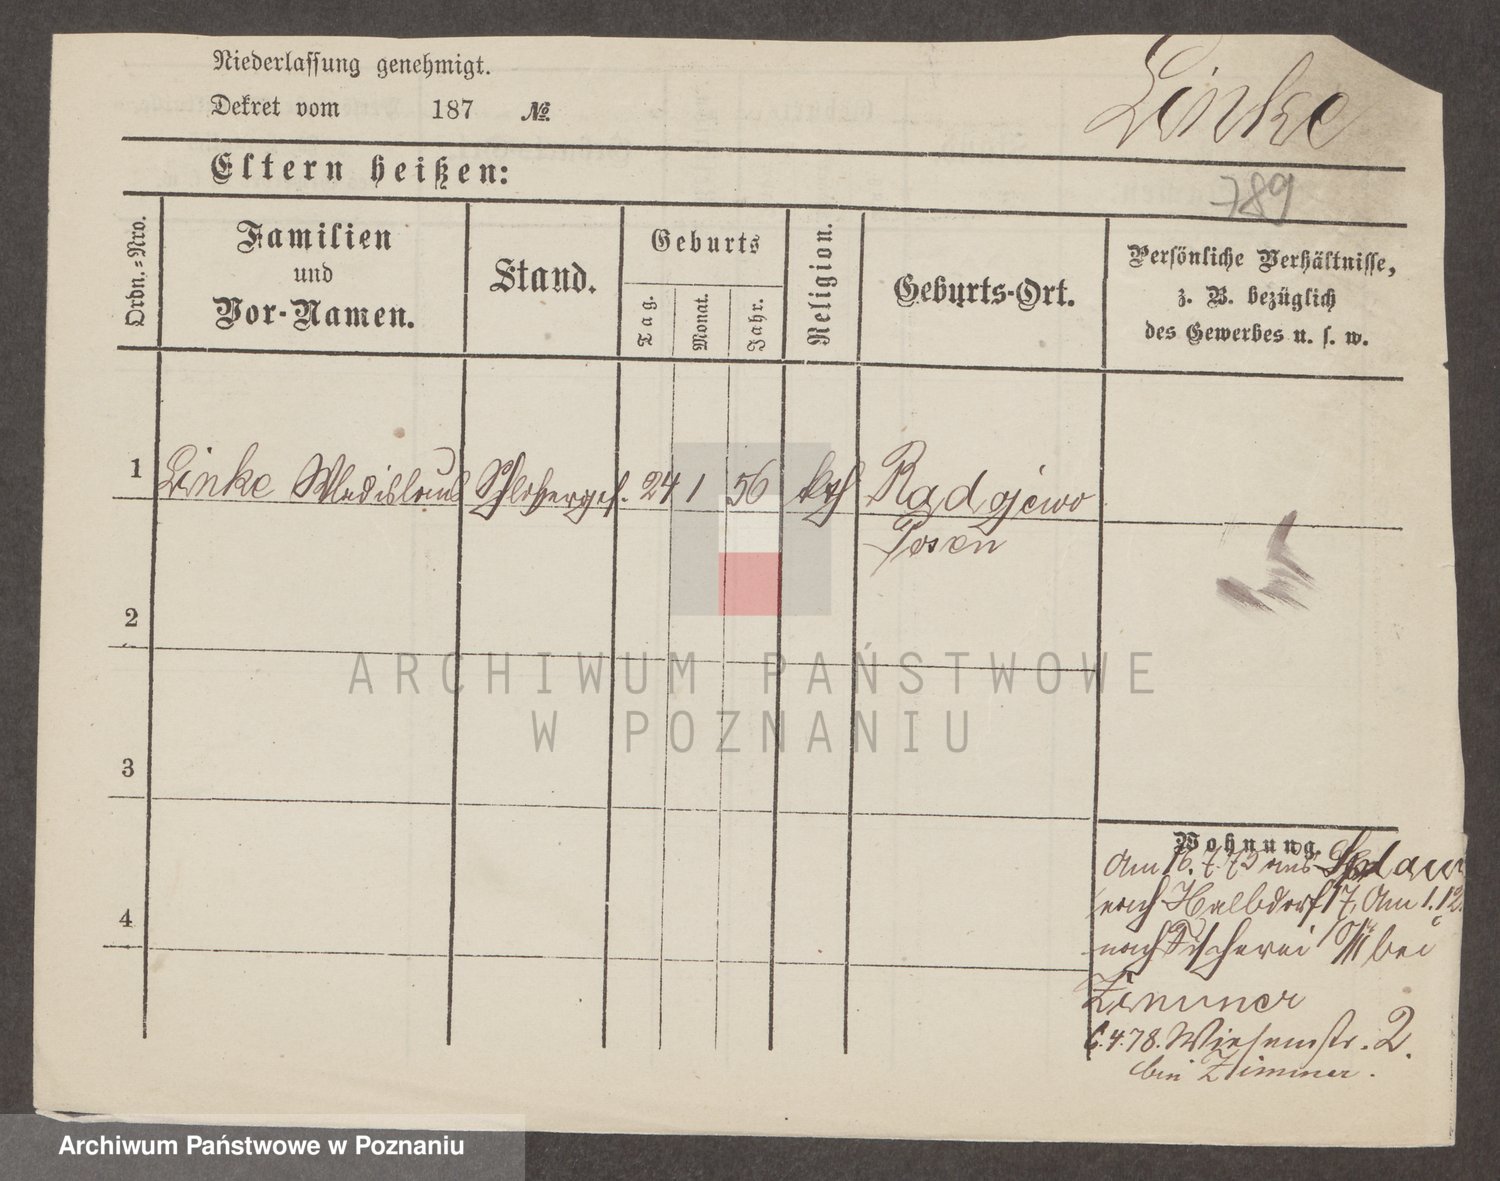 Niederlassung genehmigt.
Dekret vom 187 №
Linke
789
Eltern heißen:
Ordn.=Nro.
Familien
und
Vor-Namen.
Stand.
Geburts
Tag.
Monat.
Jahr.
Religion.
Geburts-Ort.
Persönliche Verhältnisse,
z. B. bezüglich
des Gewerbes u. s. w.
1 Linke Wladislaus Schlosserges. 24 1 56 kth Radojewo
Posen
2
3
4
Wohnung.
Am 16. 7. 75 aus
nach Halbdorf 17. Am 1.12.
nach Fischerei bei
Zimmer
6.4.78. Wiesenstr. 2.
bei Zimmer.
ARCHIWUM PAŃSTWOWE
W POZNANIU
Archiwum Państwowe w Poznaniu